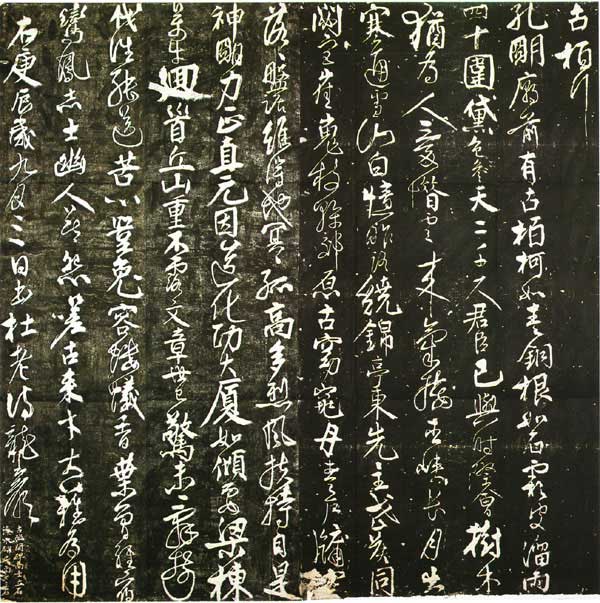 古柏行
孔明廟前有古柏柯如青銅根如石霜皮溜雨
四十圍黛色參天二千尺君臣已與時際會樹木
猶為人愛惜雲來氣接巫峽長月出
寒通雪山白憶昨路繞錦亭東先主武侯同
閟宮崔嵬枝幹郊原古窈窕丹青戶牖空
落落盤踞雖得地冥冥孤高多烈風扶持自是
神明力正直元因造化功大厦如傾要梁棟
萬牛迴首丘山重不露文章世已驚未辭剪
伐誰能送苦心豈免容螻蟻香葉曾經宿
鸞鳳志士幽人莫怨嗟古來材大難為用
右庚辰歲九月三日書杜老詩龍巖